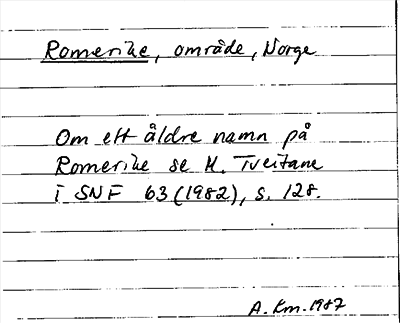 Romerike, område, Norge
Om ett äldre namn på
Romerike se M. Tveitane
i SNF 63 (1982), s. 128.
A. Km. 1987